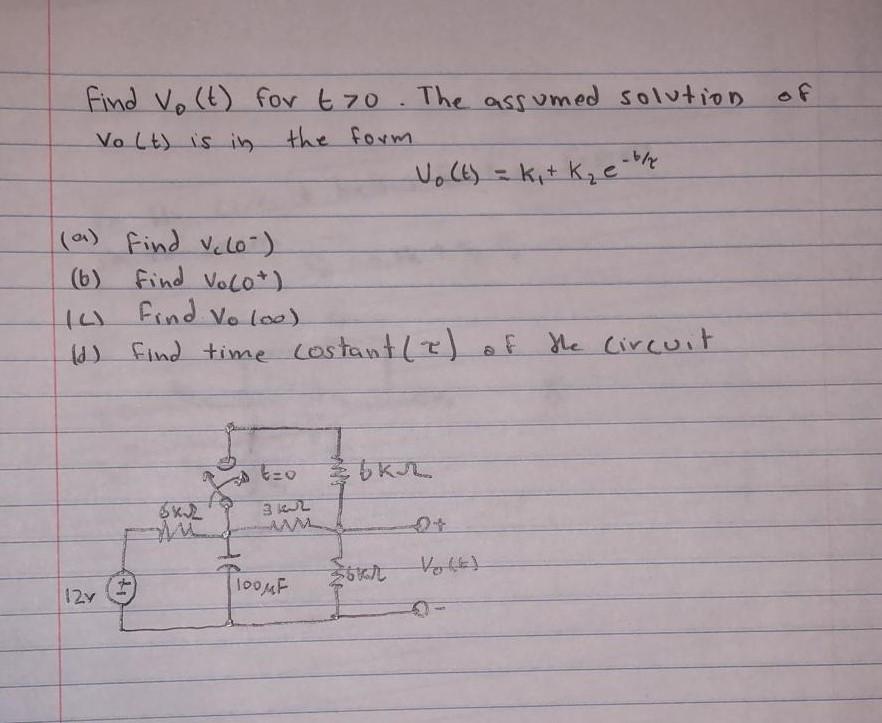 Find Vo(t) for t>0. The assumed solution of
Vo(t) is in the form
Vo(t) = K₁+ K₂ e^-t/τ
(a) Find Vc(0⁻)
(b) Find Vo(0⁺)
(c) Find Vo(∞)
(d) Find time costant(τ) of the circuit
t=0
6kΩ
6kΩ
3kΩ
+
12v
+
-
100μF
6kΩ
Vo(t)
-